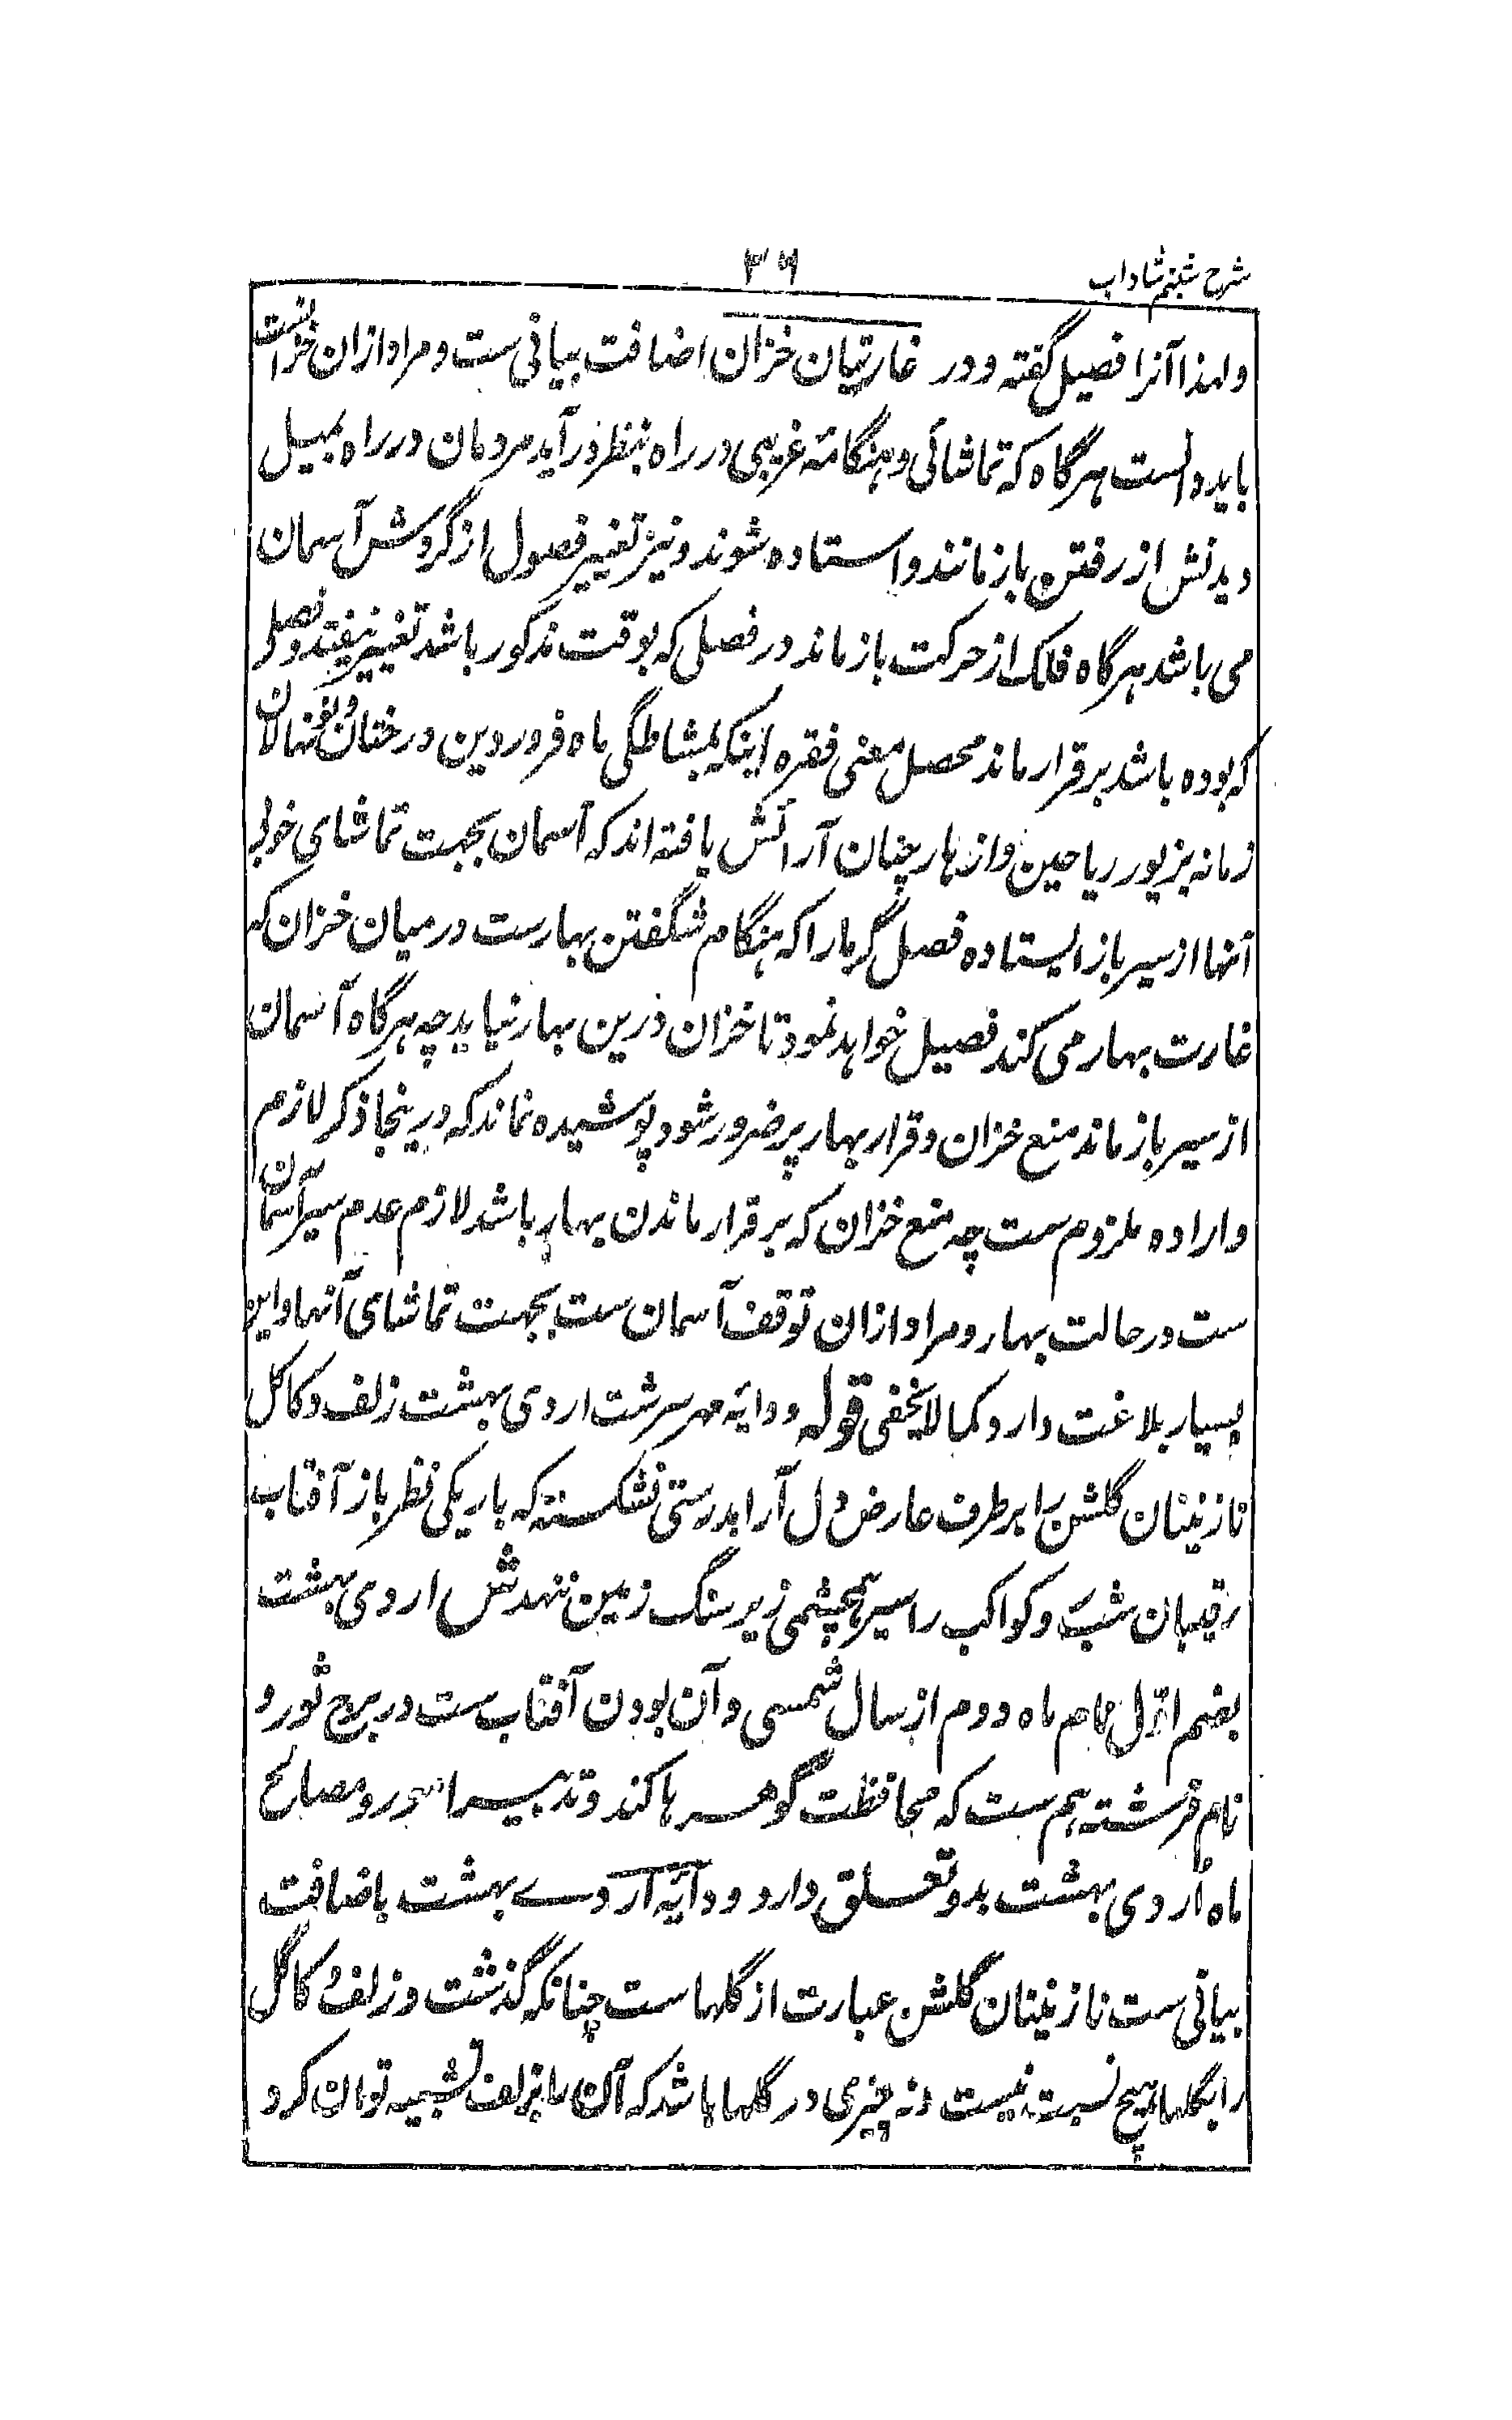 شرح شبنم شاداب
۳۶
ولهذا آنرا فصیل گفته و در غارتیان خزان اضافت بیانی ست و مراد ازان خزانست
باید دانست هرگاه که تماشائی و هنگامهٔ غریبی در راه بنظر درآید مردمان در راه بمیل
دیدنش از رفتن باز مانند و استاده شوند و نیز تغییر فصول از گردش آسمان
می باشد هرگاه فلک از حرکت باز ماند در فصلی که بوقت مذکور باشد تغییر نیفتد و فصلی
که بوده باشد برقرار ماند محصل معنی فقره اینکه بمشاطگی ماه فروردین درختان و نونهالان
زمانه بزیور ریاحین و ازهار چنان آرائش یافته اند که آسمان بجهت تماشای خوبی
آنها از سیر باز ایستاده فصل گرما را که هنگام شگفتن بهارست درمیان خزان که
غارت بهار می کند فصیل خواهد نمود تا خزان درین بهار نیاید چه هرگاه آسمان
از سیر باز ماند منع خزان و قرار بهار پر ضرور شود پوشیده نماند که درینجا ذکر لازم
و اراده ملزوم ست چه منع خزان که برقرار ماندن بهار باشد لازم عدم سیر آسمان
ست در حالت بهار و مراد ازان توقف آسمان ست بجهت تماشای آنها و این
بسیار بلاغت دارد کما لایخفی قوله و دایهٔ مهر سرشت اردی بهشت زلف و کاکل
نازنینان گلشن را بر طرف عارض دل آرا بدرستی نشکسته که باریکی نظر باز آفتاب
رقیبان شب و کواکب را سیر همچشمی زیر سنگ زمین ننهدش اردی بهشت
بضم اول نام ماه دوم از سال شمسی و آن بودن آفتاب ست در برج ثور و
نام فرشته هم ست که محافظت گوهرها کند و تدبیر امور و مصالح
ماه اردی بهشت بدو تعلق دارد و دایهٔ اردے بهشت باضافت
بیانی ست نازنینان گلشن عبارت از گلها ست چنانکه گذشت و زلف و کاکل
را بگلها هیچ نسبت نیست و نه چیزی در گلها باشد که آن را بزلف تشبیه توان کرد